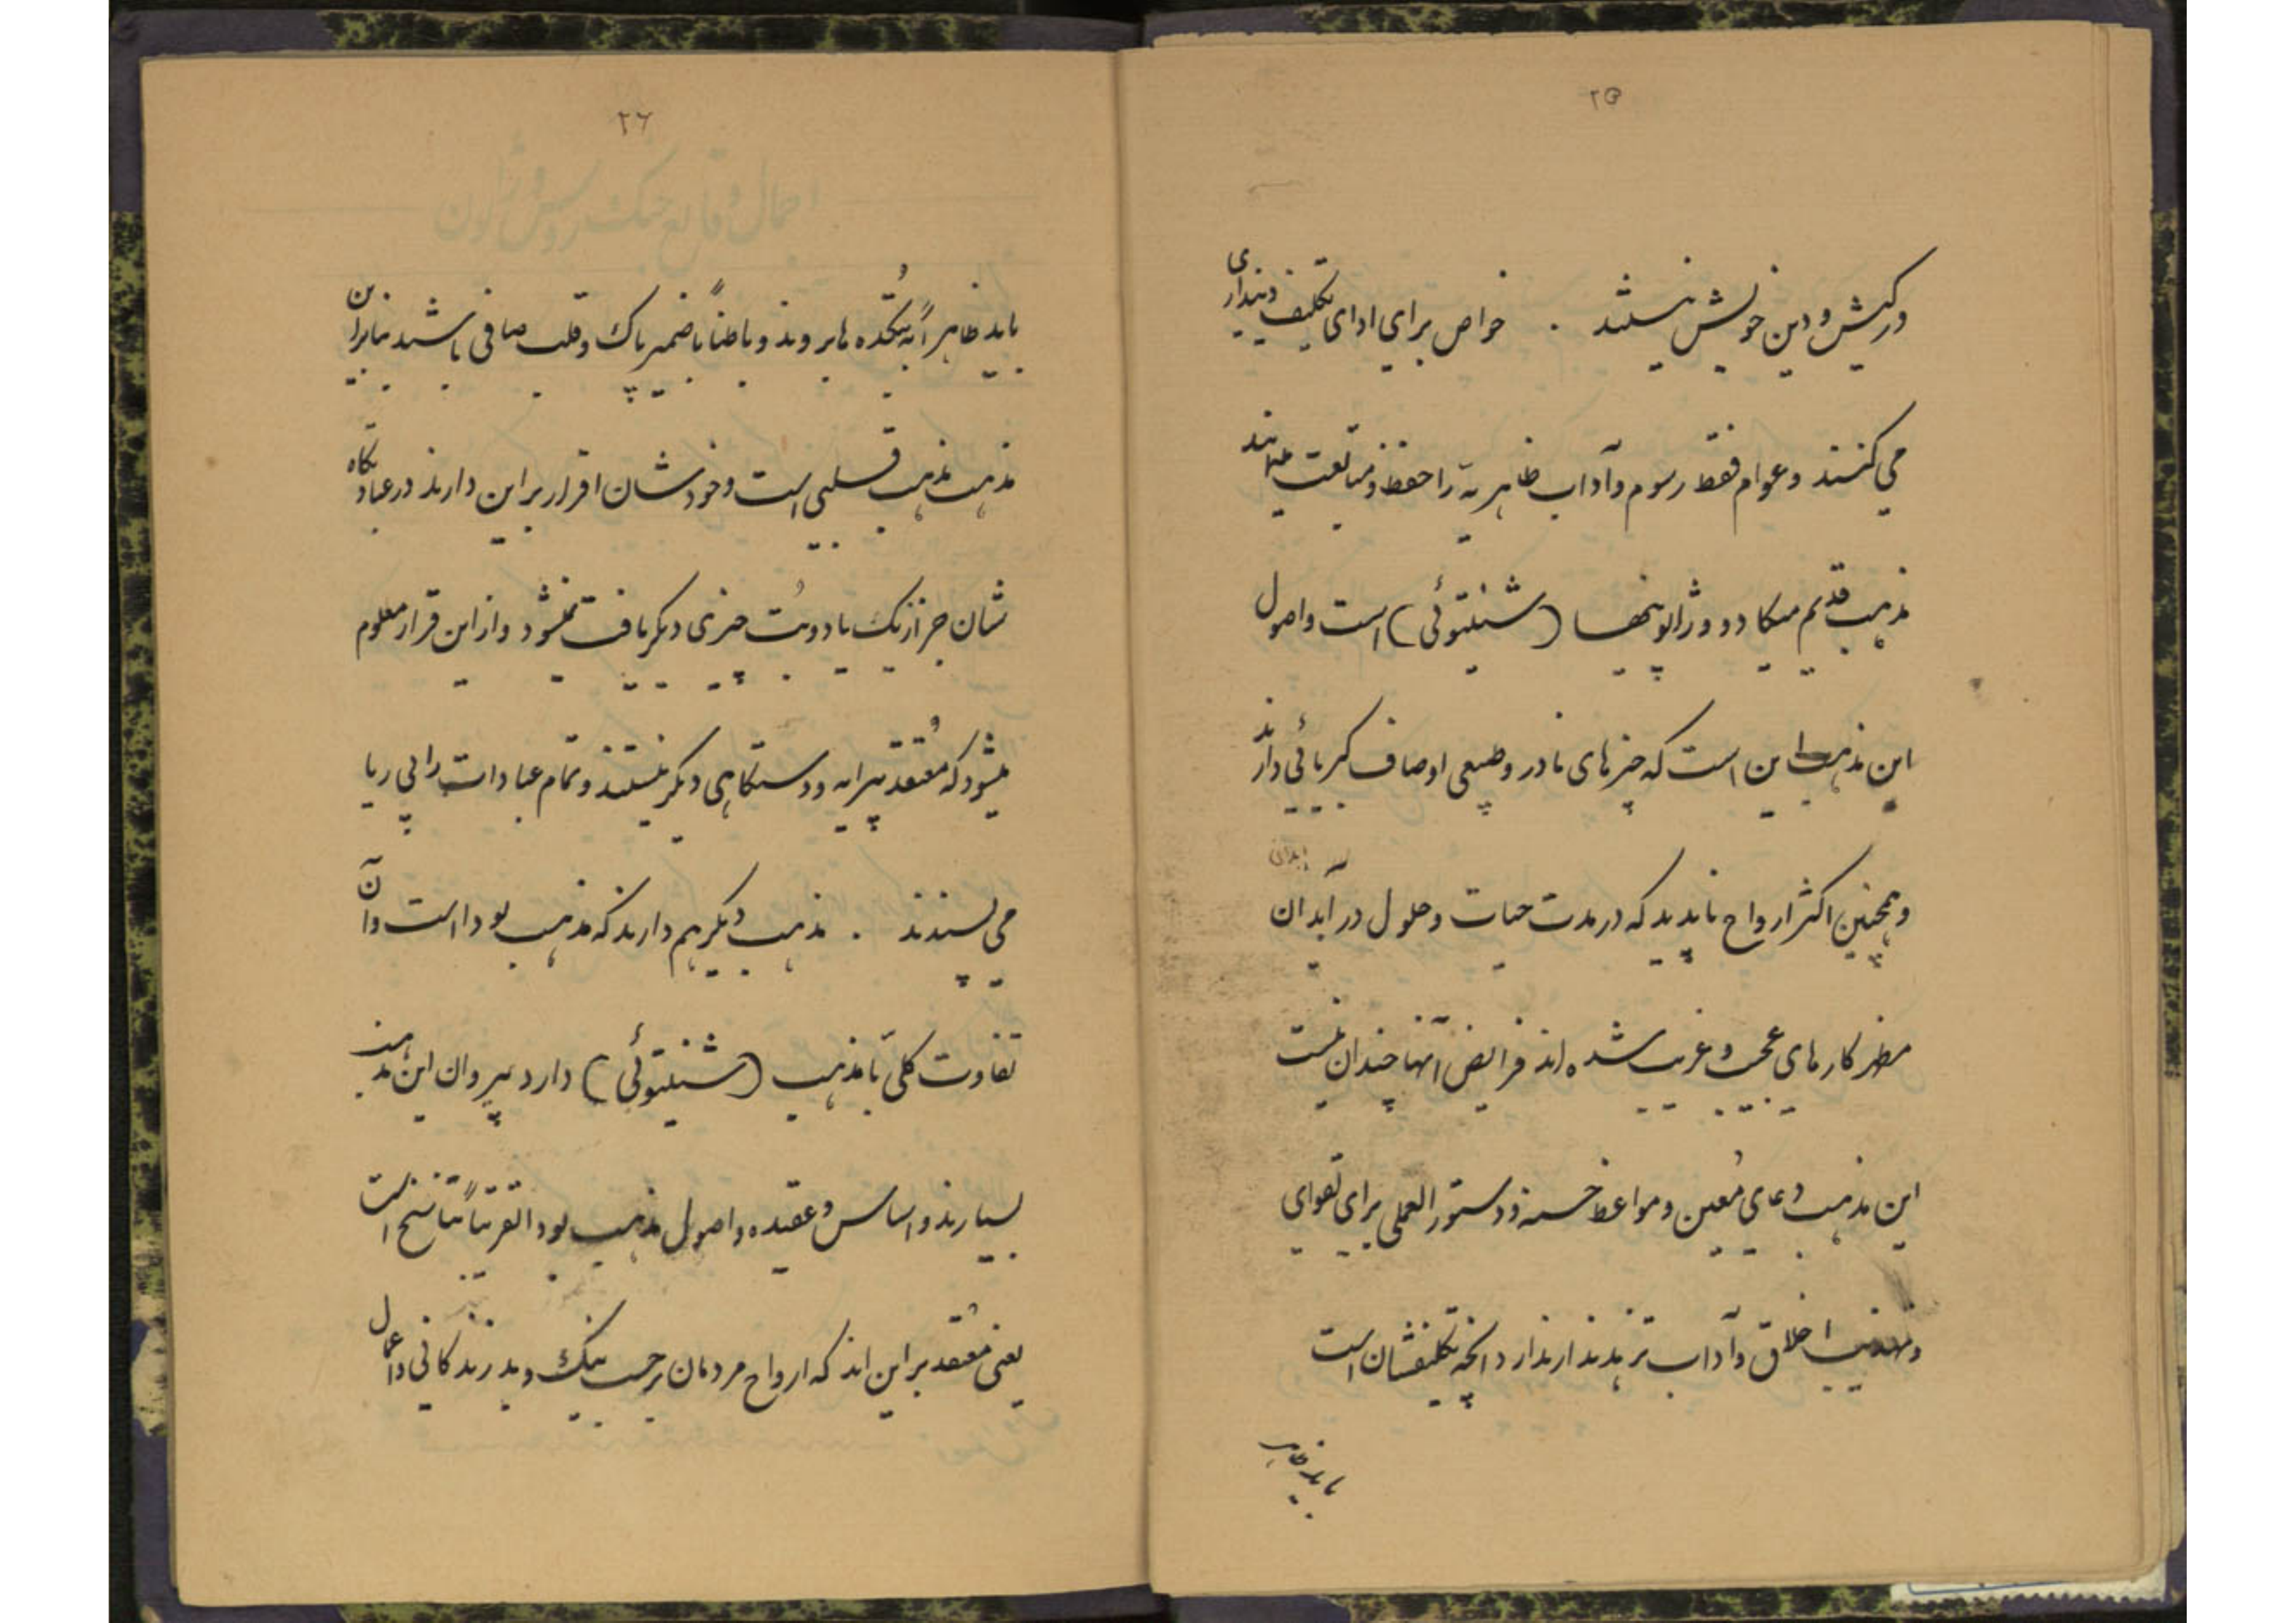 ۲۵
در کیش و دین خویش نیستند . خواص برای ادای تکلیف دینداری
می کنند و عوام فقط رسوم و آداب ظاهریه را حفظ و متابعت مینمایند
مذهب قدیم میکادو و ژاپونیها (شینتوئی) است و اصول
این مذهب این است که چیزهای نادر و طبیعی اوصاف کبریائی دارند
و همچنین اکثر ارواح ناپدید که در مدت حیات و حلول در ابدان
مظهر کارهای عجیب و غریب شده اند فرایض آنها چندان نیست
این مذهب دعای مُعین و مواعظ حسنه و دستورالعملی برای تقوای
و تهذیب اخلاق و آداب تزهد ندارند ارد آنچه تکلیفشان است
باید ظاهر
۲۶
باید ظاهراً به بُتکده ها بروند و باطناً با ضمیر پاک و قلب صافی باشند بنابراین
مذهب مذهب قلبی است و خودشان اقرار بر این دارند در عبادتگاه
شان جز از یک یا دو بُت چیزی دیگر یافت نمیشود و از این قرار معلوم
میشود که مُعتقد پیرایه و دستگاهی دیگر نیستند و تمام عبادات را بی ریا
می پسندند . مذهب دیگر هم دارند که مذهب بودا است و آن
تفاوت کلی با مذهب (شینتوئی) دارد پیروان این مذهب
بسیارند و اساس و عقیده و اصول مذهب بودا تقریباً تناسخ است
یعنی مُعتقد بر این اند که ارواح مردمان بر حسب نیک و بد زندکانی و اعمال